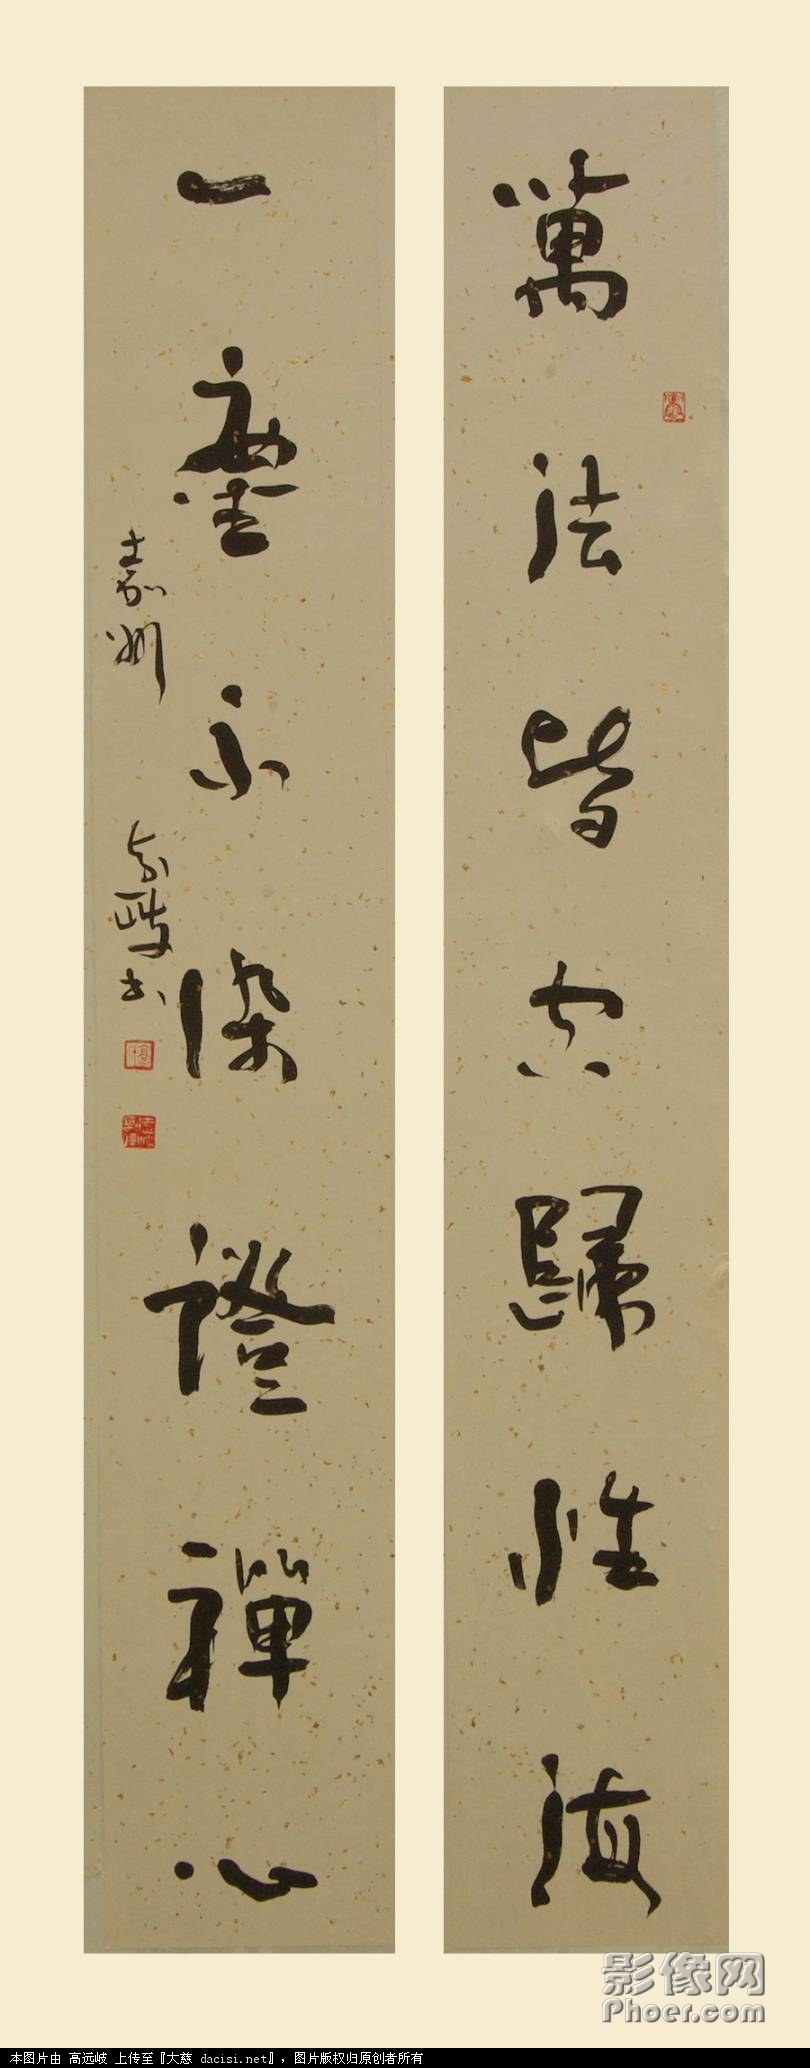 萬法皆空歸性海
一塵不染證禪心
嘉州
高岐书
影像网
Phoer.com
本图片由 高远岐 上传至『大慈 dacisi.net』，图片版权归原创者所有